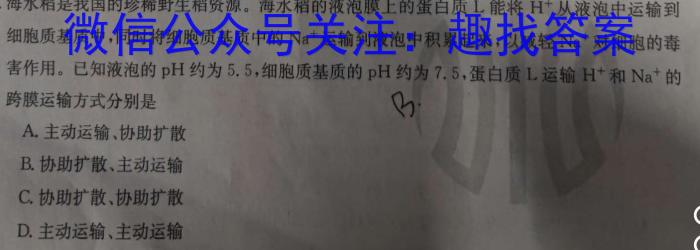 海水稻是我国的珍稀野生稻资源。海水稻的液泡膜上的蛋白质 L 能将 H⁺ 从液泡中运输到
细胞质基质中,同时将细胞质基质中的 Na⁺ 运输到液泡中积累
细胞的毒
微信公众号关注:趣找答案
害作用。已知液泡的 pH 约为 5.5,细胞质基质的 pH 约为 7.5,蛋白质 L 运输 H⁺ 和 Na⁺ 的
跨膜运输方式分别是
B.
A. 主动运输、协助扩散
B. 协助扩散、主动运输
C. 协助扩散、协助扩散
D. 主动运输、主动运输